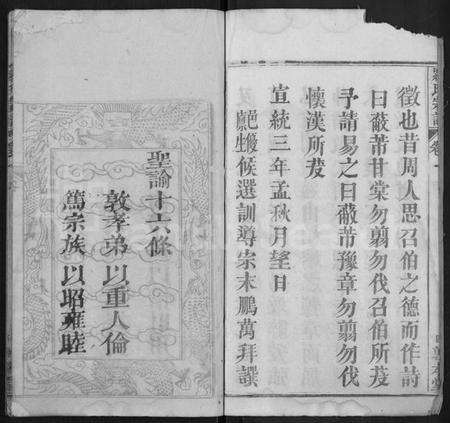 徵也昔周人思召伯之德而作詩
曰蔽芾甘棠勿翦勿伐召伯所茇
予請易之曰蔽芾豫章勿翦勿伐
懷漢所茇
宣統三年孟秋月望日
邑廩生候選訓導宗末鵬萬拜譔
聖諭十六條
敦孝弟以重人倫
篤宗族以昭雍睦